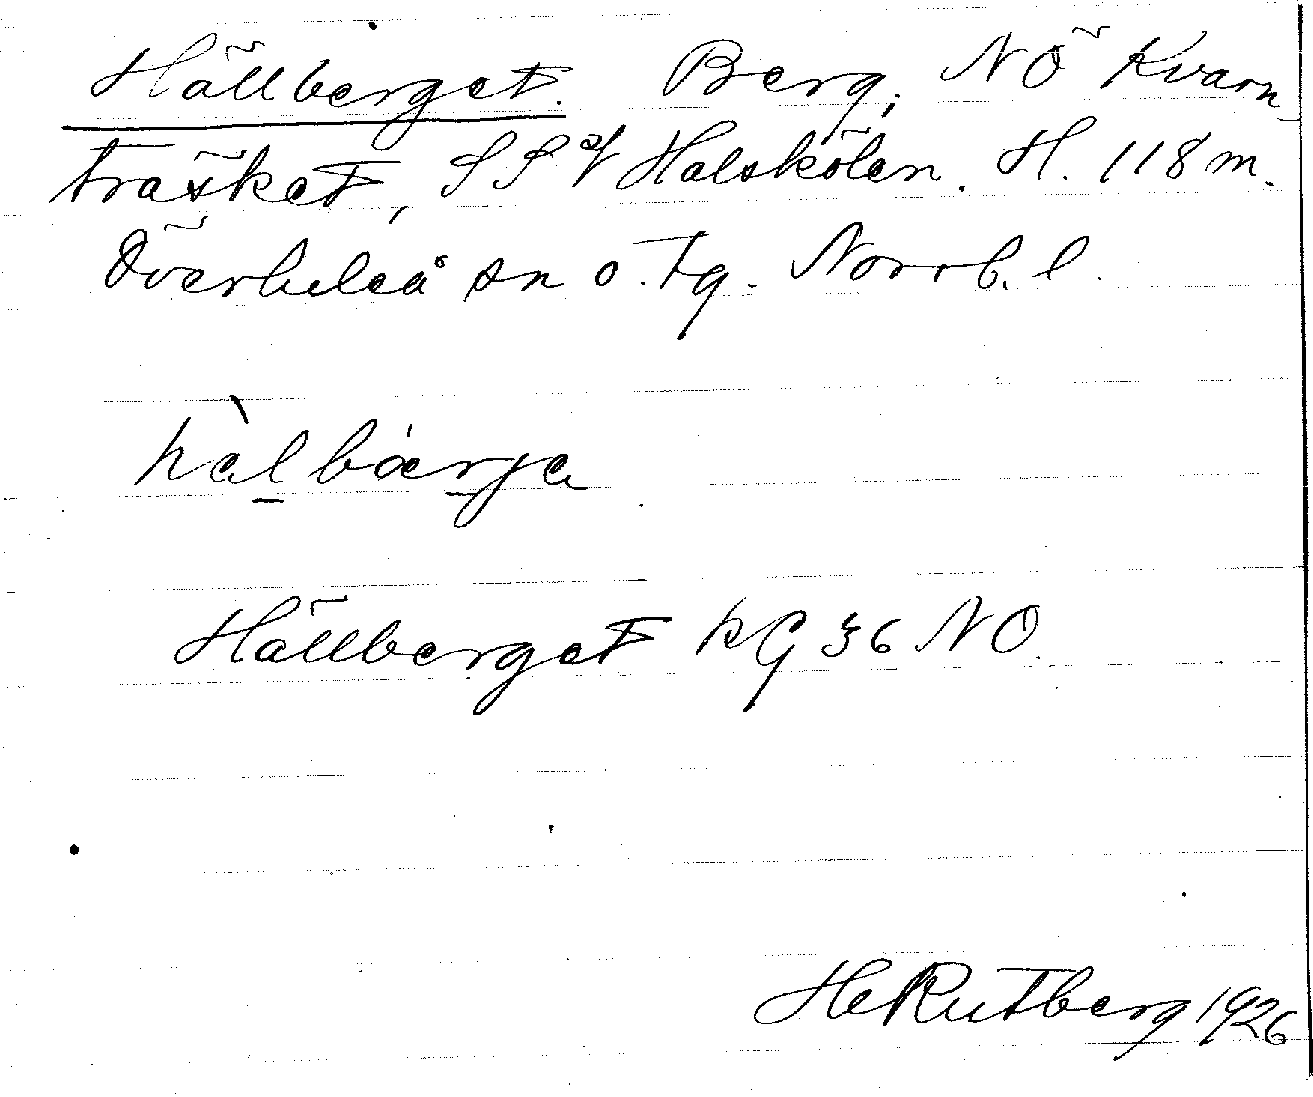 Hällberget. Berg, NÖ Kvarn-
träsket, SSV Halskölen. H. 118 m.
Överluleå sn o. tg. Norrb. l.
hàl bárja
Hällberget kG 36 NO
HeRutberg 1926